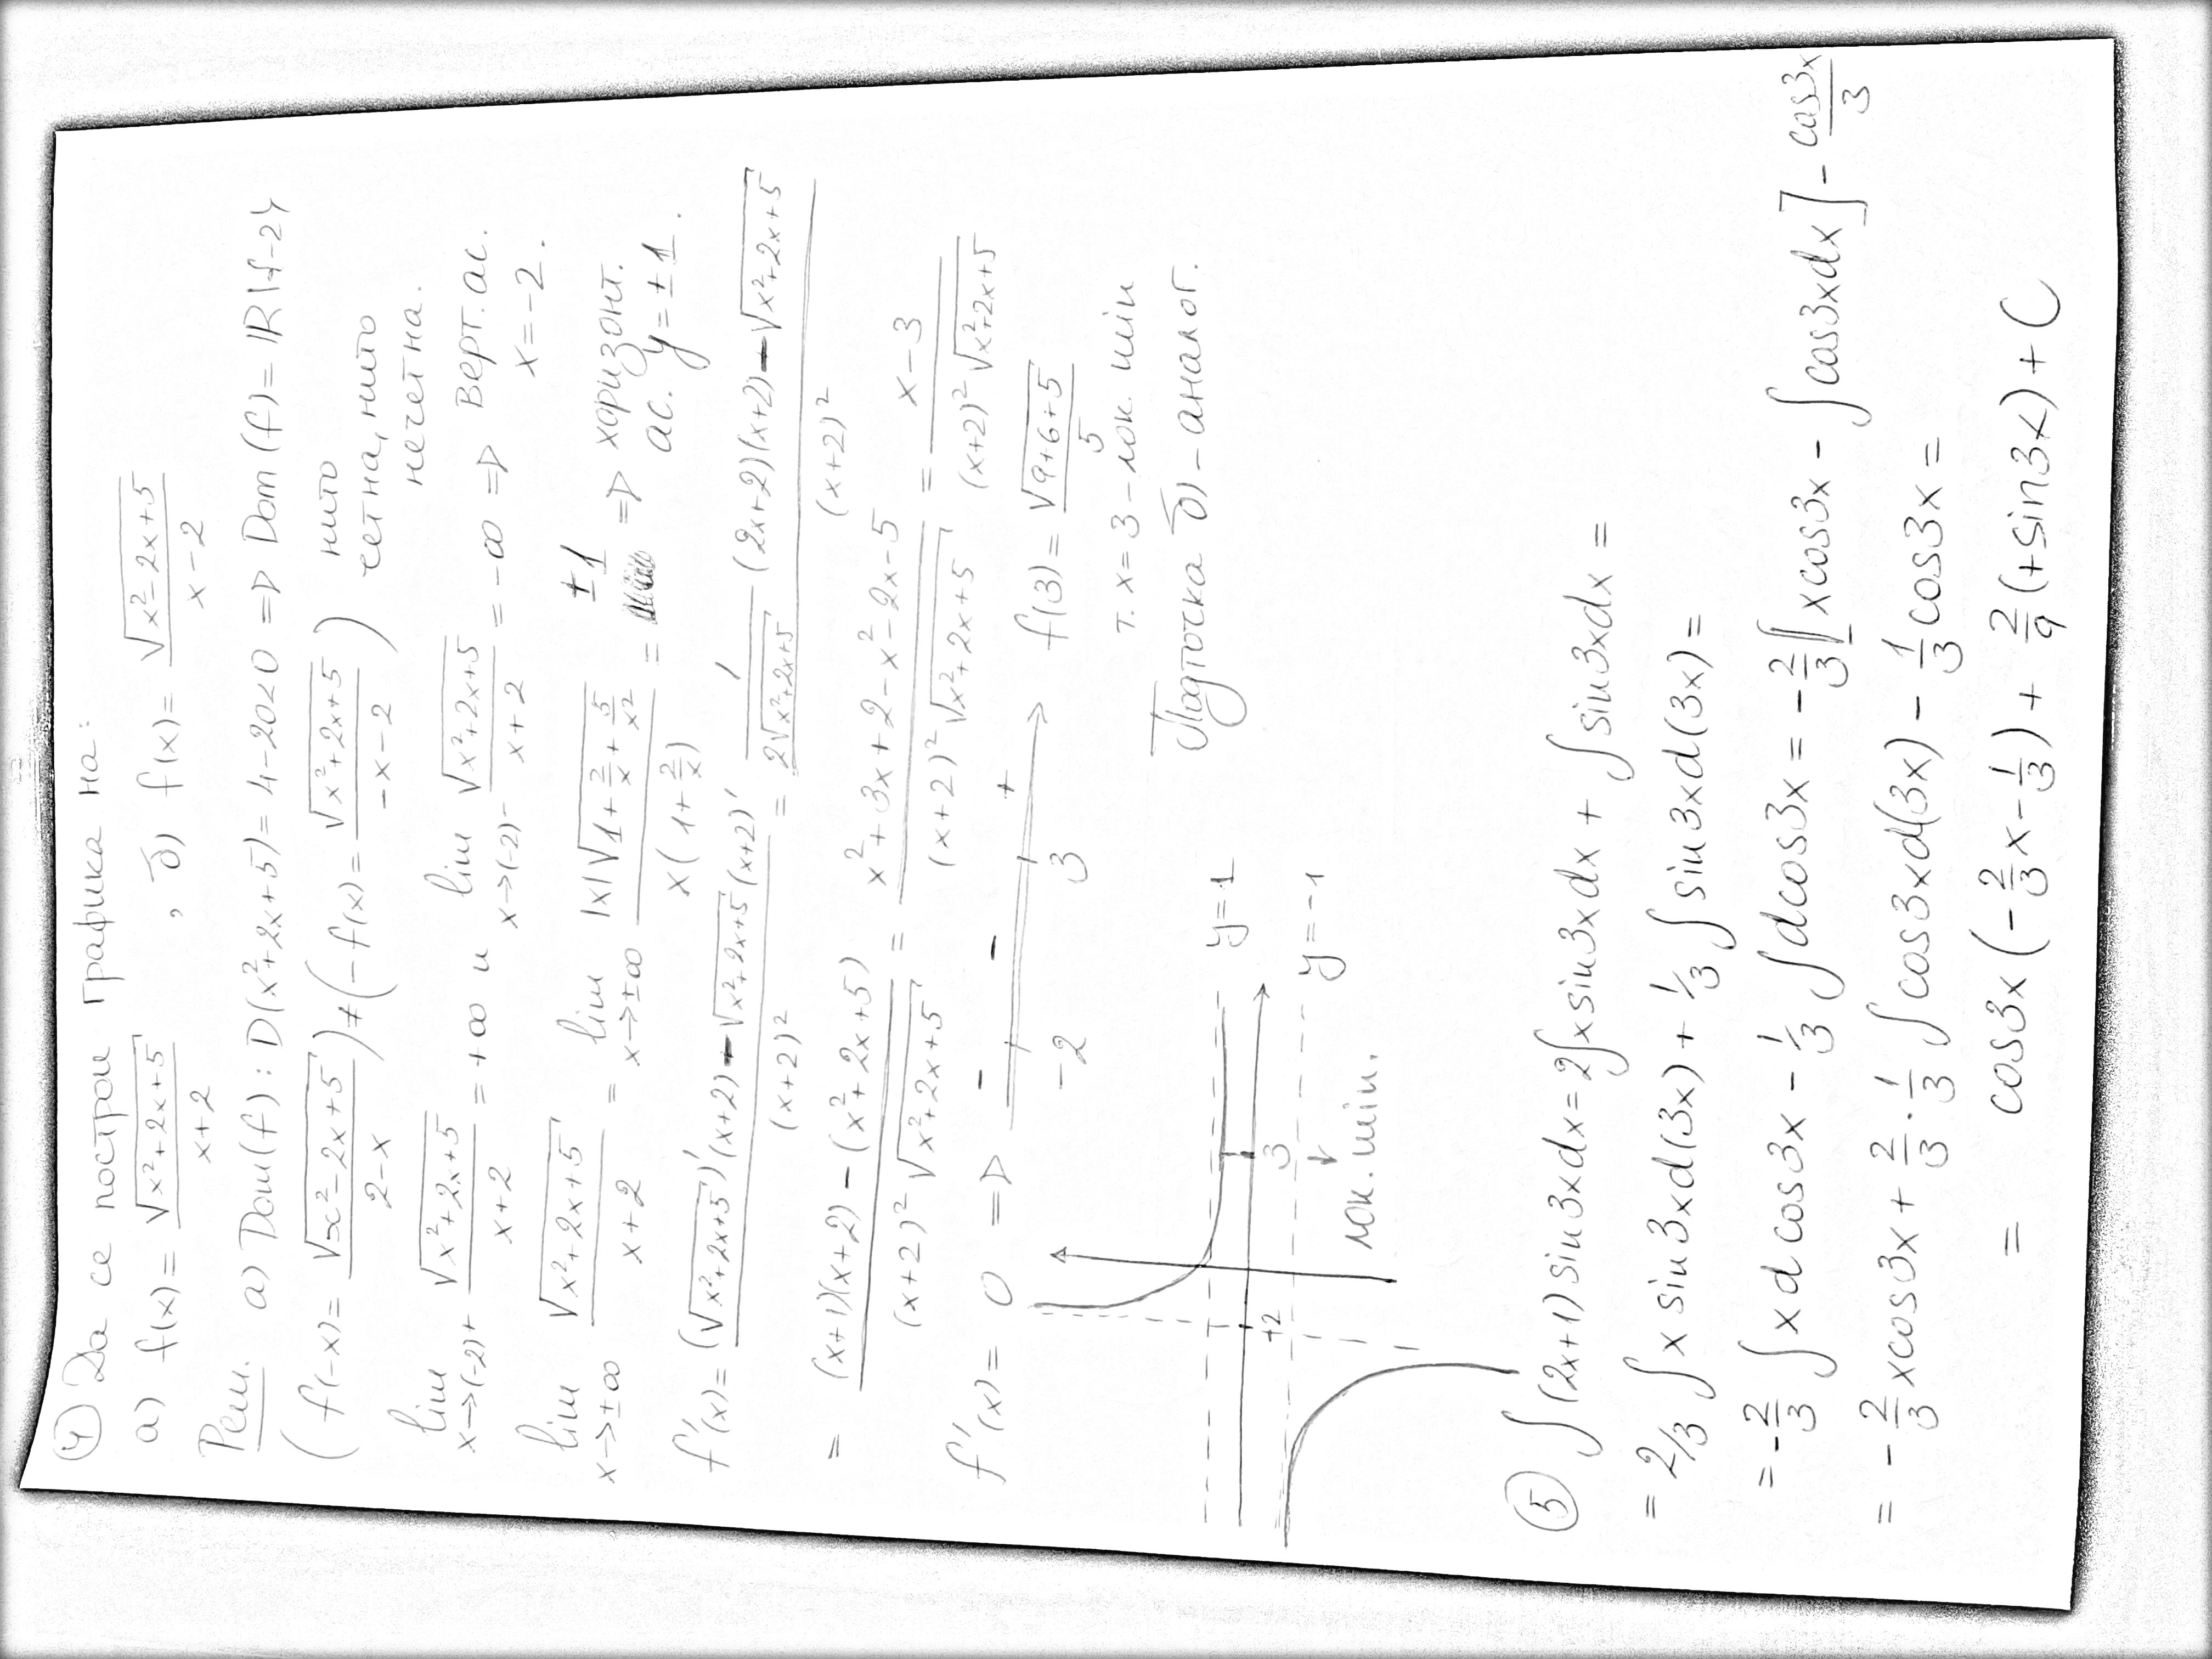 ④ Да се построи графика на:
а) f(x) = √(x²+2x+5) / (x+2) , б) f(x) = √(x²-2x+5) / (x-2)
Реш. а) Dom(f) : D(x²+2x+5) = 4-20<0 => Dom (f) = ℝ\{-2}
( f(-x) = √(x²-2x+5) / (2-x) ) ≠ ( -f(x) = √(x²+2x+5) / (-x-2) ) нито
четна, нито
нечетна.
lim x→(-2)+ √(x²+2x+5) / (x+2) = +∞ и lim x→(-2)- √(x²+2x+5) / (x+2) = -∞ => верт. ас.
x=-2.
lim x→±∞ √(x²+2x+5) / (x+2) = lim x→±∞ |x|√(1+2/x+5/x²) / x(1+2/x) = ±1 => хоризонт.
ас. y=±1.
f'(x) = ((√(x²+2x+5))'(x+2) - √(x²+2x+5) (x+2)') / (x+2)² = (1/(2√(x²+2x+5)) (2x+2)(x+2) - √(x²+2x+5)) / (x+2)²
= ((x+1)(x+2) - (x²+2x+5)) / ((x+2)² √(x²+2x+5)) = (x²+3x+2-x²-2x-5) / ((x+2)² √(x²+2x+5)) = (x-3) / ((x+2)² √(x²+2x+5))
f'(x) = 0 => - - +
-2 3
f(3) = √(9+6+5) / 5
т. x=3 - лок. min
Подточка б) - аналог.
y=1
+2 3
y=-1
лок. min.
⑤ ∫(2x+1) sin3xdx = 2∫x sin3xdx + ∫sin3xdx =
= 2/3 ∫x sin3xd(3x) + 1/3 ∫sin3xd(3x) =
= -2/3 ∫xd cos3x - 1/3 ∫dcos3x = -2/3 [xcos3x - ∫cos3xdx] - cos3x/3
= -2/3 xcos3x + 2/3 · 1/3 ∫cos3xd(3x) - 1/3 cos3x =
= cos3x (-2/3 x - 1/3) + 2/9 (+sin3x) + C